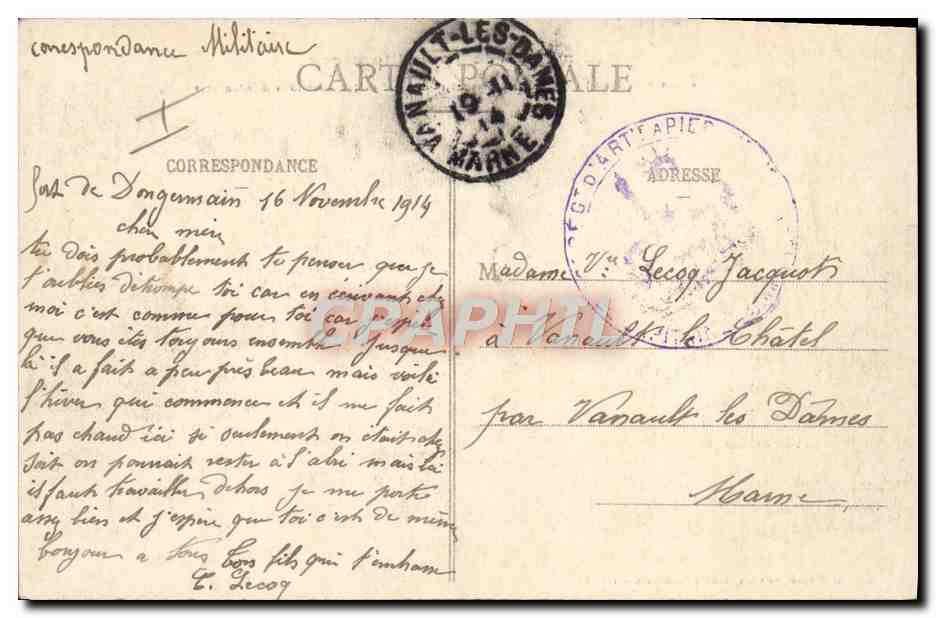 correspondance Militaire
CARTE POSTALE
VANAULT-LES-DAMES
19 -11
14
MARNE
RÉGT D'ARTIE A PIED
CORRESPONDANCE
ADRESSE
fort de Dongermain 16 Novembre 1914
cher mère
tu dois probablement te penser que je
t'oublies détrompe toi car en écrivant chez
moi c'est comme pour toi car j'espère
que vous êtes toujours ensemble Jusque
là il a fait a peu près beau mais voilà
l'hiver qui commence et il ne fait
pas chaud ici si seulement on était chez
soit on pourrait rester à l'abri mais là
il faut travailler dehors je me porte
assez bien et j'espère que toi c'est de même
bonjour a tous Tons fils qui t'embrasse
E. Lecoq
Madame Ve Lecoq Jacquot
à Vanault le Châtel
par Vanault les Dames
Marne
CPAPHIL